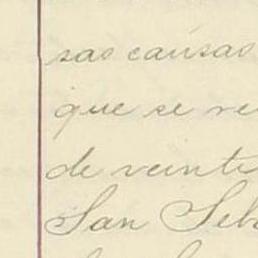 sas causas
que se re
de veinti
San Seb